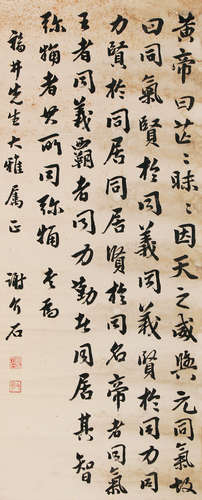 黃帝曰芒〻昧〻因天之威與元同氣故
曰同氣賢於同義同義賢於同力同
力賢於同居同居賢於同名帝者同氣
王者同義覇者同力勤者同居其智
弥觕者其所同弥觕書為
福井先生大雅屬正 謝介石